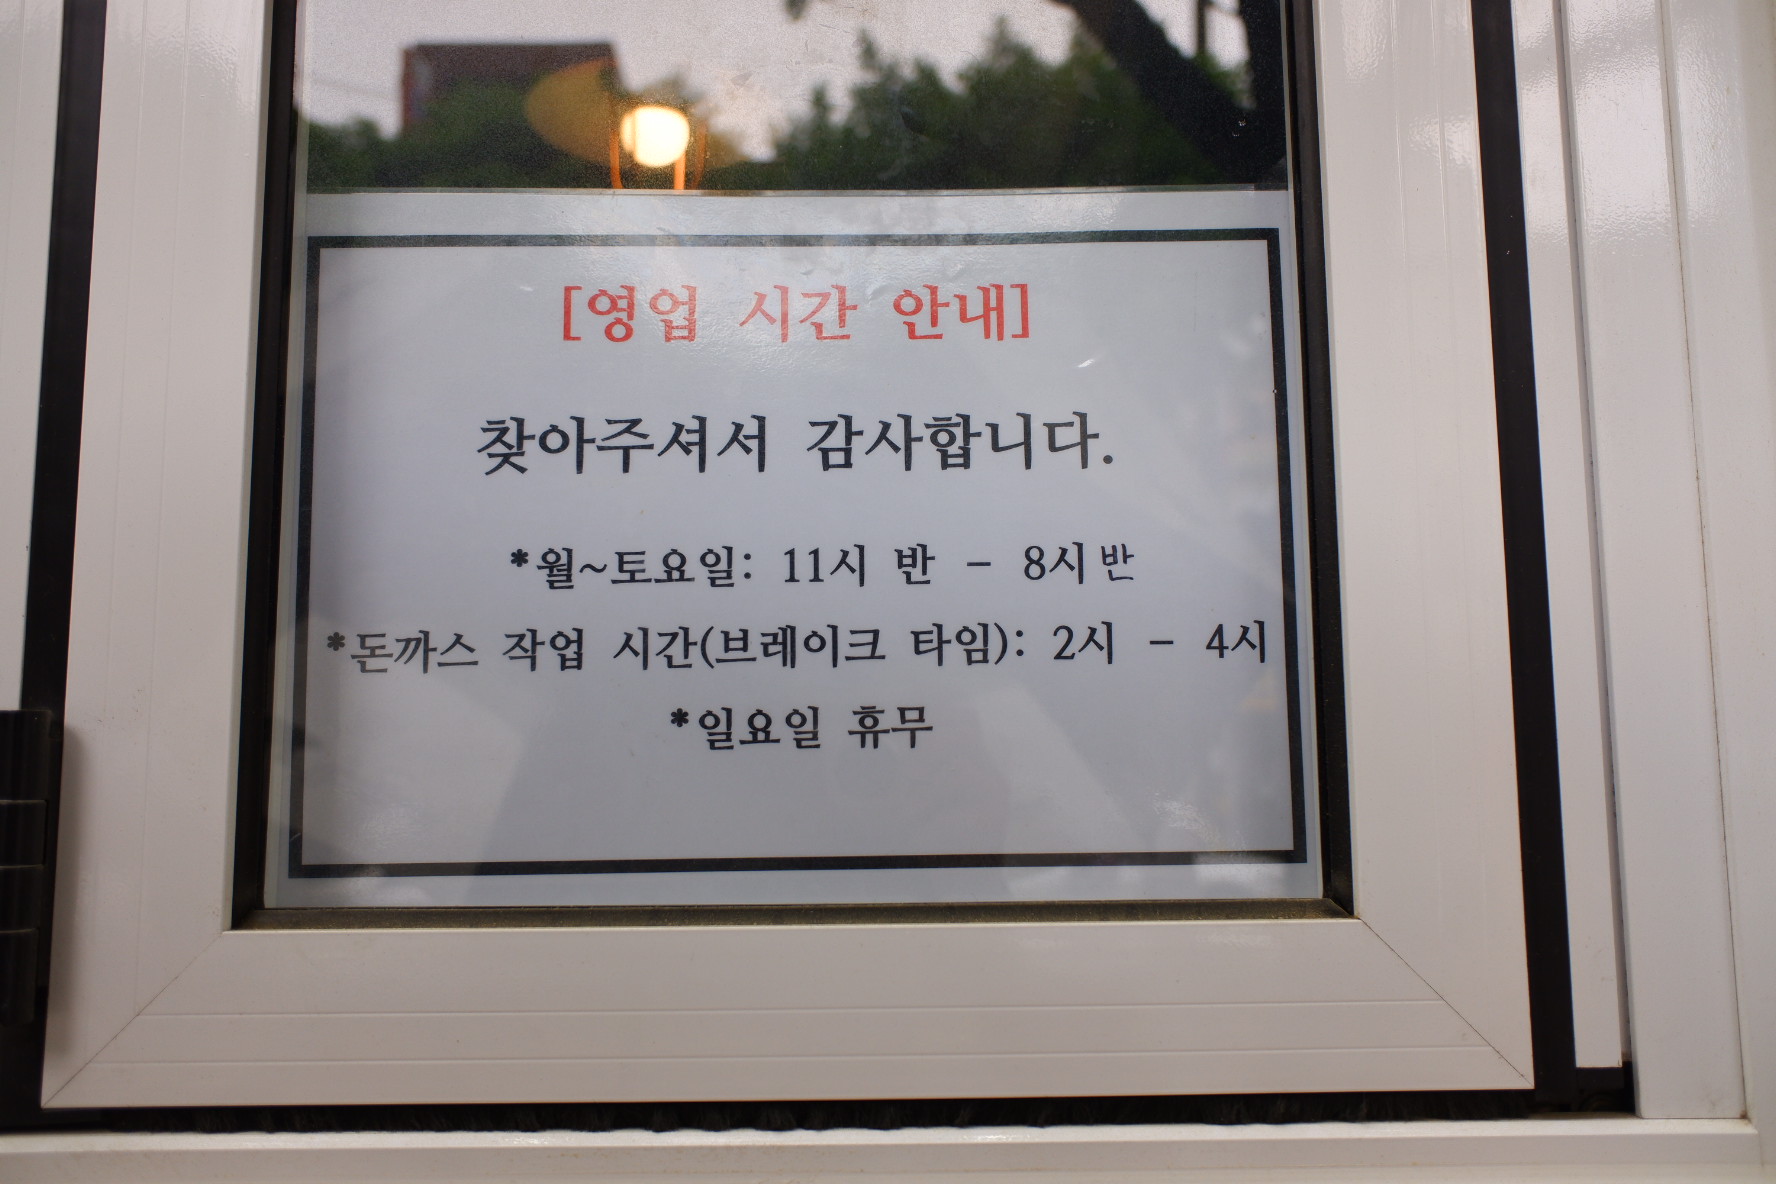 [영업 시간 안내]
찾아주셔서 감사합니다.
*월~토요일: 11시 반 - 8시 반
*돈까스 작업 시간(브레이크 타임): 2시 - 4시
*일요일 휴무